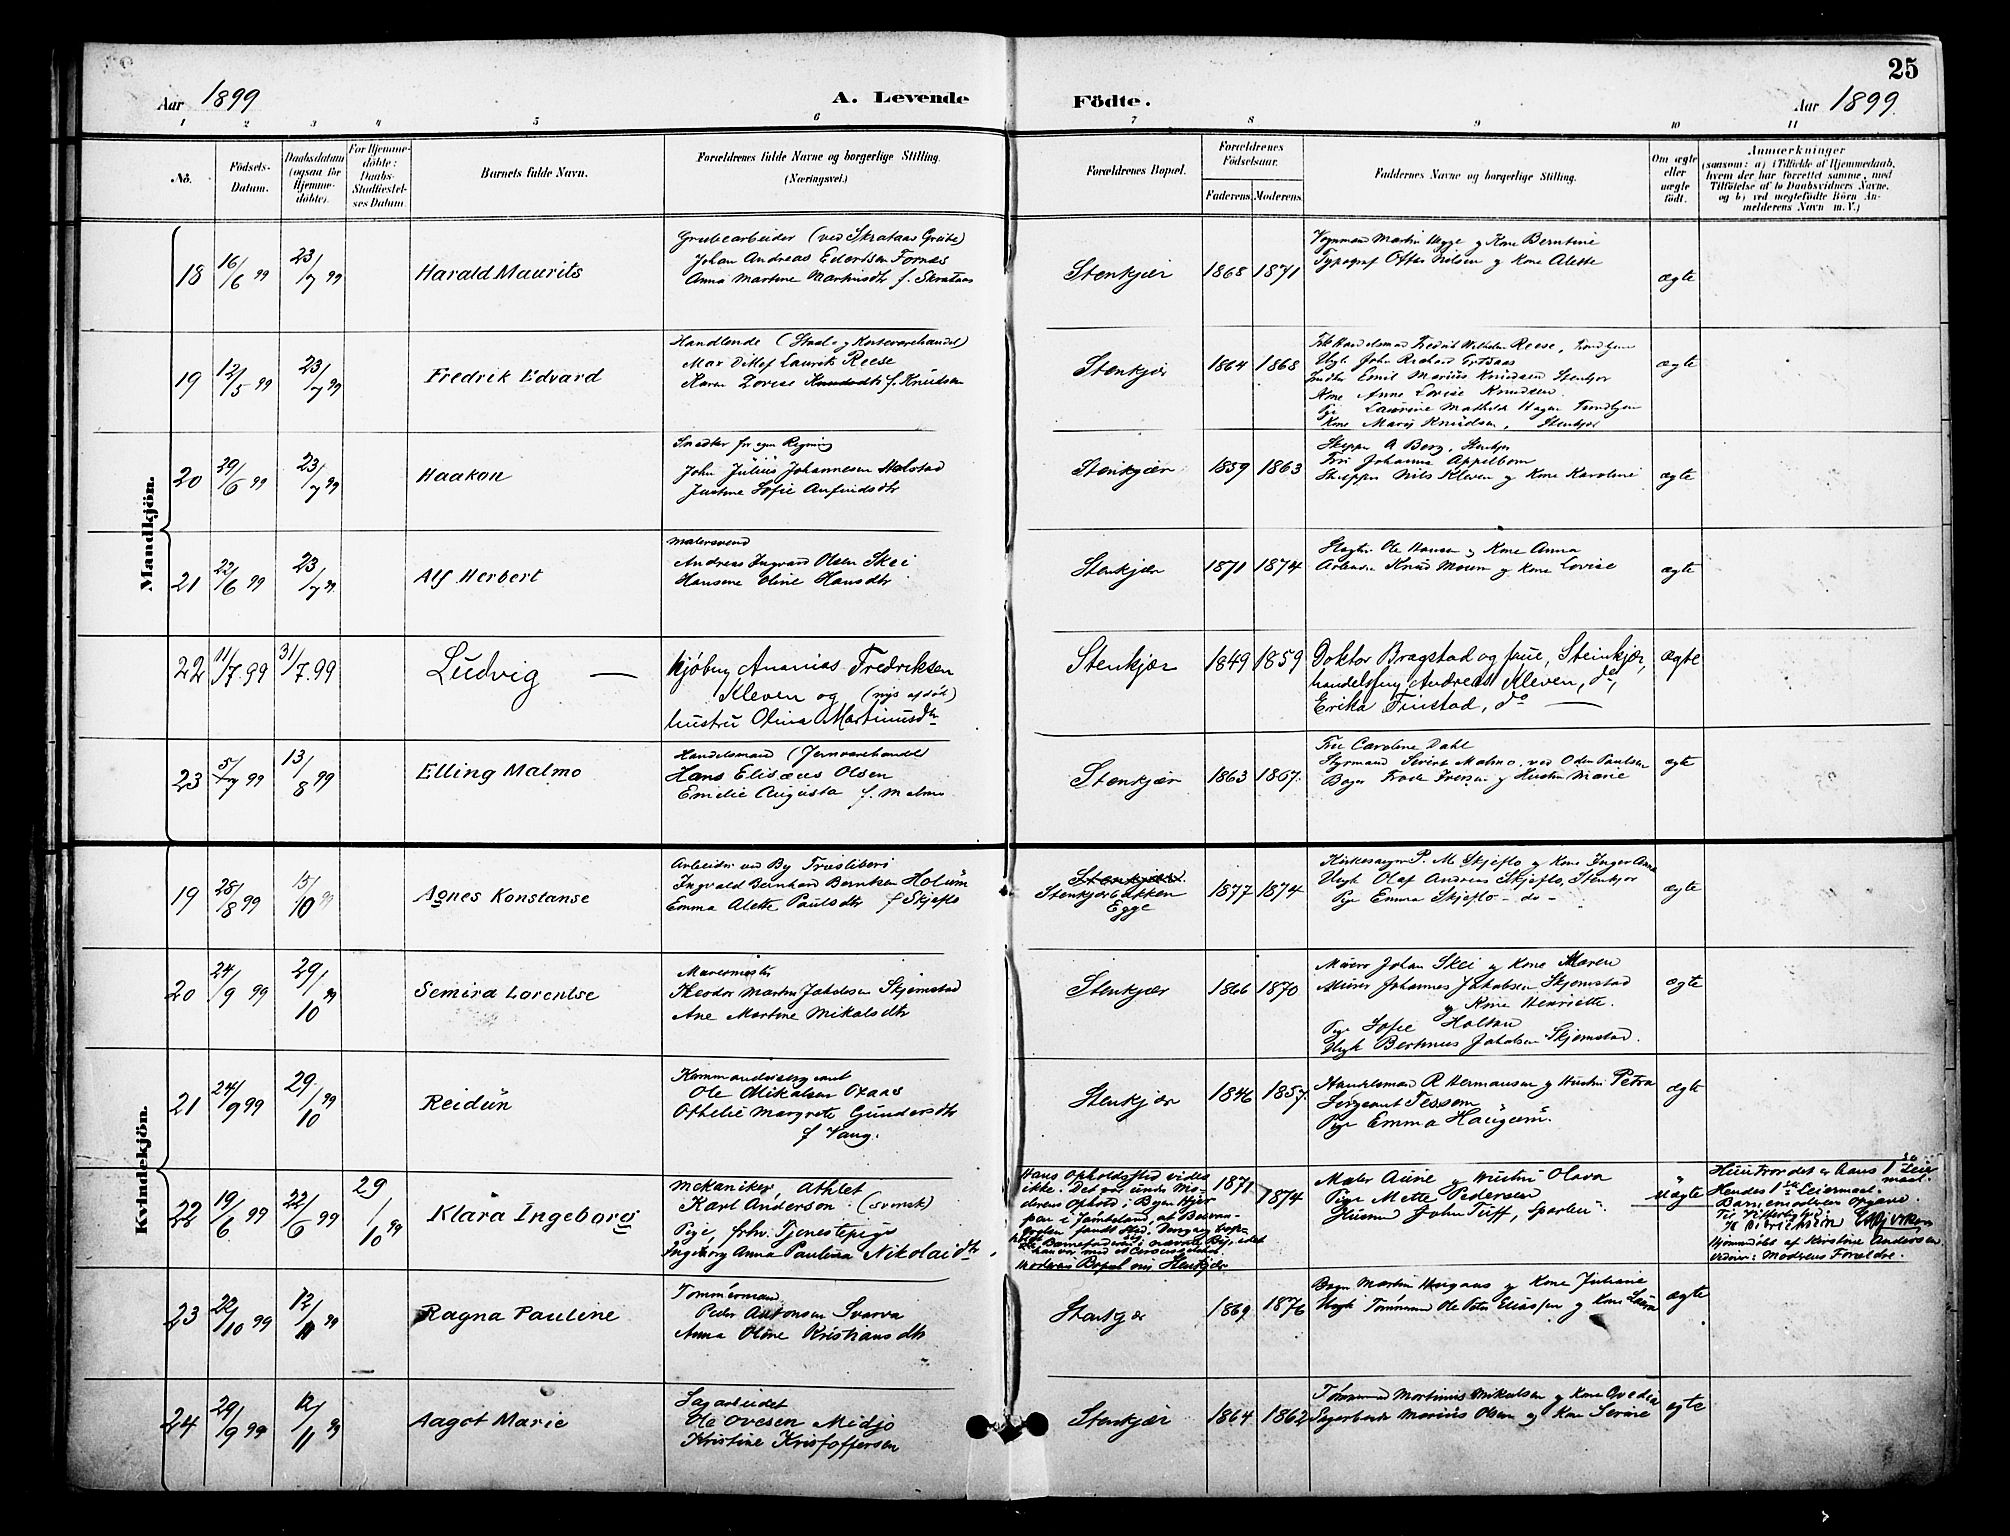 25
Aar 1899
A. Levende
Födte.
Aar 1899.
1 2 3 4 5 6 7 8 9 10 11
No.
Födsels-Datum.
Daabsdatum (ogsaa för Hjemme-döbte).
For Hjemme-döbte: Daabs-Stadfæstel-ses Datum.
Barnets fulde Navn.
Forældrenes fulde Navne og borgerlige Stilling.
(Næringsvei.)
Forældrenes Bopæl.
Forældrenes Födselsaar.
Faderens. Moderens.
Faddernes Navne og borgerlige Stilling.
Om ægte eller uægte födt.
Anmærkninger
(saasom: a) i Tilfælde af Hjemmedaab,
hvem der har forrettet samme, med
Tilföielse af to Daabsvidners Navne,
og b) ved uægtefödte Börn An-
melderens Navn m. V.)
Mandkjön.
18 16/6 99 23/7 99 Harald Maurits
Grubearbeider (ved Skrataas Grube)
Johan Andreas Edertsen Fornæs
Anna Martine Martinusdtr f. Skrataas
Stenkjær 1868 1871
Vognmand Martin Hegge og Kone Berntine
Typograf Nilsen og Kone Alette
ægte
19 12/5 99 23/7 99 Fredrik Edvard
Handlende (Staal- og Kortevarehandel)
Max Ditlef Laurits Reese
Karen Lovise Knudsdtr f. Knudsen
Stenkjær 1864 1868
Fredrik Wilhelm Reese,
Ungk. John Richard
Emil Marius Knudsen Stenkjær
Kone Anne Lovise Knudsen
Pige Laurine Mathilde Hagen Trondhjem
Kone Mary Knudsen, Stenkjær
ægte
20 29/6 99 23/7 99 Haakon
Snedker for egen Regning
John Julius Johannesen Holstad
Justine Sofie Arfindsdtr
Stenkjær 1859 1863
Skipper A Berg, Stenkjær
Frk Johanna Appelbom
Skipper Nils Kleven og Kone Karoline
ægte
21 22/6 99 23/7 99 Alf Herbert
Malersvend
Andreas Ingvard Olsen Skei
Hansine Oline Hansdtr
Stenkjær 1871 1874
Ole Hansen og Kone Anna
Arbeider Knud Moum og Kone Lovise
ægte
22 11/7.99 31/7.99 Ludvig —
Kjøbm Ananias Fredriksen
Kleven og (nys afdöd)
hustru Olina Martinusdtr
Stenkjær 1849 1859
Doktor Bragstad og frue, Steinkjær,
handelsm Andreas Kleven, do,
Erika Finstad, do —
ægte
23 5/7 99 13/8 99 Elling Malmo
Handelsmand (Jernvarehandel)
Hans Elisæus Olsen
Emelie Augusta f. Malmo
Stenkjær 1863 1867.
Fru Caroline Dahl
Styrmand Sivert Malmo, ved Oden Paulsen
Bager Iversen og Hustru Marie
ægte
Kvindekjön.
19 28/8 99 15/10 99 Agnes Konstanse
Arbeider ved By Træsliberi
Ingvald Bernhard Berntsen Holum
Emma Alette Paulsdtr f Skjeflo
Stenkjær
Stenkjærbakken
Egge
1877 1874
Kirkesanger P. M. Skjeflo og Kone Inger Anna
Ungk Olaf Andreas Skjeflo, Stenkjær
Pige Emma Skjeflo - do -
ægte
20 24/9 99 29/10 99 Semira Lorentse
Murermester
Theodor Martin Jakobsen Skjemstad
Ane Martine Mikalsdtr
Stenkjær 1866 1870
Murer Johan Skei og Kone Maren
Murer Johannes Jakobsen Skjemstad
og Kone Henriette.
Pige Sofie Holtan
Ungk Bertinus Jakobsen Skjemstad.
ægte
21 24/9 99 29/10 99 Reidun
Kommandersergeant
Ole Mikalsen Oxaas
Othelie Margrete Gundersdtr
f Vang.
Stenkjær 1846 1857.
Handelsmand R Hermansen og Hustru Petra
Sergeant Fossem
Pige Emma Haugum.
ægte
22 19/6 99 22/6 99 29/10 99 Klara Ingeborg
Mekaniker, Athlet
Karl Anderson (svensk)
Pige, frhv. Tjenestepige
Ingeborg Anna Paulina Nikolaidtr.
Hans Opholdssted vides
ikke. Det var under Mo-
derens Ophold i Byen
i Jämtland, at
fandt Sted.
han var med et Cirkusselskab
Moderens Bopæl nu Stenkjær
1871 1874
Maler Aune og Hustru Olava
Pige Mette Pedersen
Husmd John Tuff, Sparbu.
uægte
Hun tror det er hans 1ste Leier-
maal.
Hendes 1ste Leiermaal.
Barnemoderen opgave.
Til Vitterlighed:
Hjemmedöbt af Kristine Andersen
Vidner: Modrens Forældre.
23 22/10 99 12/11 99 Ragna Pauline
Tømmermand
Peder Antonsen Svarva
Anna Oline Kristiansdtr
Stenkjær 1869 1876
Martin Haugaas og Kone Juliane
Ungk Tømmermd Ole Peter Eliassen og Kone Laura
ægte
24 29/9 99 12/11 99 Aagot Marie
Sagarbeider
Ole Ovesen Midjo
Kristine Kristoffersen
Stenkjær 1864 1862
Tømmermd Martinus Mikalsen og Kone
Sagarbeider Marius Olsen og Kone Serine
ægte